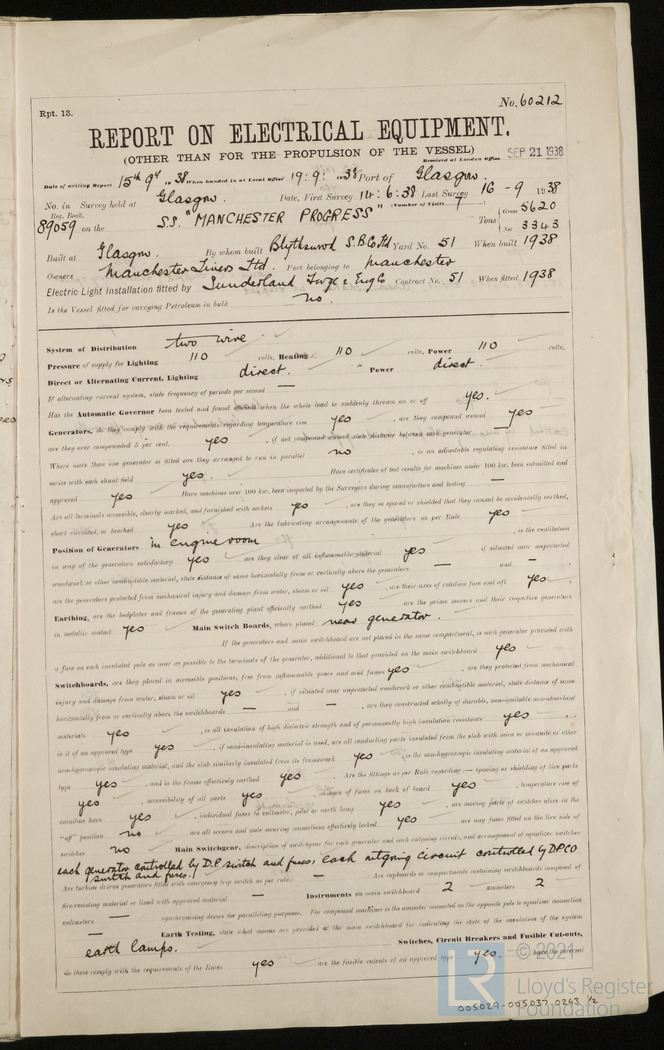 Rpt. 13.
No. 60212
REPORT ON ELECTRICAL EQUIPMENT.
(OTHER THAN FOR THE PROPULSION OF THE VESSEL)
Received at London Office SEP 21 1938
Date of writing Report 15th 9th 1938 When handed in at Local Office 19:9:1938 Port of Glasgow.
No. in Survey held at Glasgow. Date, First Survey 14:6:38 Last Survey 16-9 1938
Reg. Book. (Number of Visits 7)
89059 on the S.S. "MANCHESTER PROGRESS" Tons Gross 5620
Net 3343
Built at Glasgow. By whom built Blythswood S.B.Co Ltd Yard No. 51 When built 1938
Owners Manchester Liners Ltd. Port belonging to Manchester
Electric Light Installation fitted by Sunderland Forge & Eng Co Contract No. 51 When fitted 1938
Is the Vessel fitted for carrying Petroleum in bulk no.
System of Distribution two wire.
Pressure of supply for Lighting 110 volts, Heating 110 volts, Power 110 volts.
Direct or Alternating Current, Lighting direct. Power direct.
If alternating current, state frequency of periods per second —
Has the Automatic Governor been tested and found when the whole load is suddenly thrown on or off yes.
Generators, do they comply with the requirements regarding temperature rise yes, are they compound wound yes
are they over compounded 5 per cent. yes, if not compound wound state distance between each generator —
Where more than one generator is fitted are they arranged to run in parallel no, is an adjustable regulating resistance fitted in
series with each shunt field yes. Have certificates of test results for machines under 100 kw. been submitted and
approved yes Have machines over 100 kw. been inspected by the Surveyors during manufacture and testing —
Are all terminals accessible, clearly marked, and furnished with sockets yes, are they so spaced or shielded that they cannot be accidentally earthed,
short circuited, or touched yes Are the lubricating arrangements of the generators as per Rule yes
Position of Generators in engine room, is the ventilation
in way of the generators satisfactory yes are they clear of all inflammable material yes if situated near unprotected
woodwork or other combustible material, state distance of same horizontally from or vertically above the generators — and —
are the generators protected from mechanical injury and damage from water, steam or oil yes, are their axes of rotation fore and aft yes.
Earthing, are the bedplates and frames of the generating plant efficiently earthed yes are the prime movers and their respective generators
in metallic contact yes Main Switch Boards, where placed near generator.
If the generators and main switchboard are not placed in the same compartment, is each generator provided with
a fuse on each insulated pole as near as possible to the terminals of the generator, additional to that provided on the main switchboard yes
Switchboards, are they placed in accessible positions, free from inflammable gases and acid fumes yes, are they protected from mechanical
injury and damage from water, steam or oil yes, if situated near unprotected woodwork or other combustible material, state distance of same
horizontally from or vertically above the switchboards — and —, are they constructed wholly of durable, non-ignitable non-absorbent
materials yes, is all insulation of high dielectric strength and of permanently high insulation resistance yes
is it of an approved type yes, if semi-insulating material is used, are all conducting parts insulated from the slab with mica or micanite or other
non-hygroscopic insulating material, and the slab similarly insulated from its framework yes, is the non-hygroscopic insulating material of an approved
type yes, and is the frame effectively earthed yes. Are the fittings as per Rule regarding:— spacing or shielding of live parts
yes, accessibility of all parts yes, absence of fuses on back of board yes, temperature rise of
omnibus bars yes, individual fuses to voltmeter, pilot or earth lamp yes, are moving parts of switches alive in the
"off" position no are all screws and nuts securing connections effectively locked yes are any fuses fitted on the live side of
switches no Main Switchgear, description of switchgear for each generator and each outgoing circuit, and arrangement of equalizer switches
each generator controlled by D.P. switch and fuses, each outgoing circuit controlled by D.P.C.O
switch and fuses.
Are turbine driven generators fitted with emergency trip switch as per rule — Are cupboards or compartments containing switchboards composed of
fire-resisting material or lined with approved material — Instruments on main switchboard 2 ammeters 2
voltmeters — synchronising device for paralleling purposes. For compound machines is the ammeter connected on the opposite pole to equaliser connection
— Earth Testing, state what means are provided at the main switchboard for indicating the state of the insulation of the system
earth lamps. Switches, Circuit Breakers and Fusible Cut-outs,
do these comply with the requirements of the Rules yes are the fusible cutouts of an approved type yes. have the reversed
© 2021
LR
Lloyd's Register
Foundation
005029-005037-0243 1/2